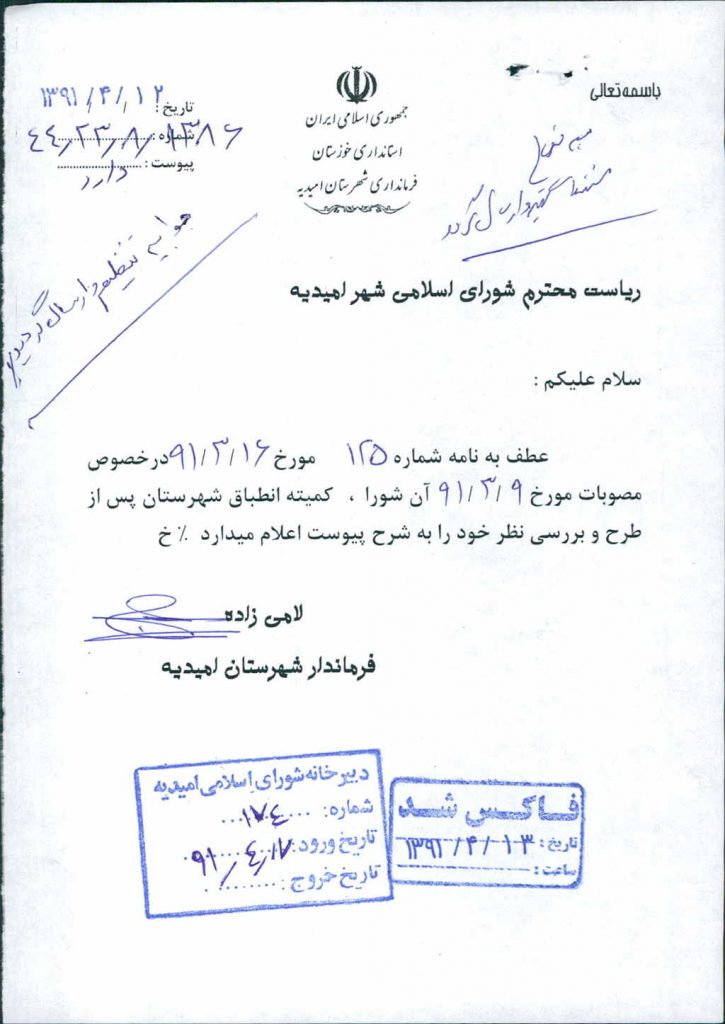 باسمه تعالی
جمهوری اسلامی ایران
استانداری خوزستان
فرمانداری شهرستان امیدیه
تاریخ : ۱۳۹۱/۴/۱۲
شماره :
پیوست : دارد
جوابیه تنظیم و ارسال گردید
ریاست محترم شورای اسلامی شهر امیدیه
سلام علیکم :
عطف به نامه شماره ۱۲۵ مورخ ۹۱/۳/۱۶ درخصوص
مصوبات مورخ ۹۱/۳/۹ آن شورا ، کمیته انطباق شهرستان پس از
طرح و بررسی نظر خود را به شرح پیوست اعلام میدارد ٪ خ
لامی زاده
فرماندار شهرستان امیدیه
دبیرخانه شورای اسلامی امیدیه
شماره: ۱۷۴
تاریخ ورود: ۹۱/۴/۱۷
تاریخ خروج:
فاکس شد
تاریخ : ۱۳۹۱/۴/۱۳
ساعت :